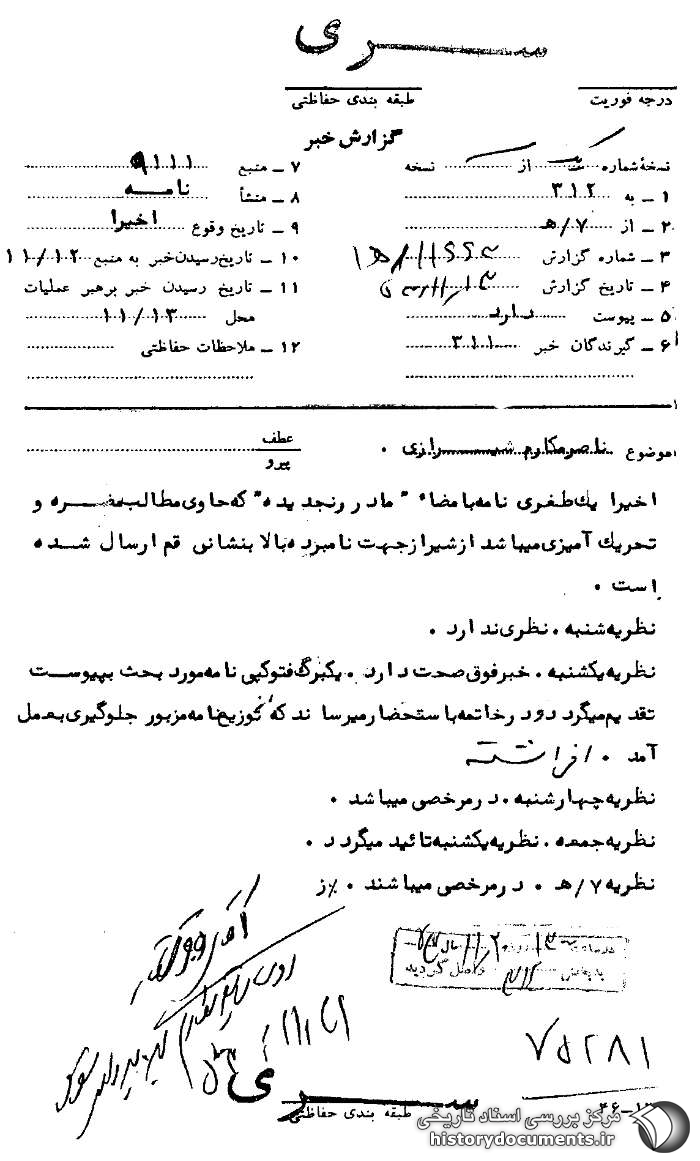 ســـری
درجه فوریت
طبقه بندی حفاظتی
گزارش خبر
نسخهٔ شماره یک از نسخه
۱ ـ به ۳۱۲
۲ ـ از ۷/هـ
۳ ـ شماره گزارش
۴ ـ تاریخ گزارش
۵ ـ پیوست دارد
۶ ـ گیرندگان خبر ۳۱۱
۷ ـ منبع ۹۱۱۱
۸ ـ منشأ نامــه
۹ ـ تاریخ وقوع اخیرا
۱۰ ـ تاریخ رسیدن خبر به منبع ۱۱/۱۲
۱۱ ـ تاریخ رسیدن خبر برهبر عملیات
محل ۱۱/۱۳
۱۲ ـ ملاحظات حفاظتی
موضوع ناصر مکارم شیــرازی .
عطف
پیرو
اخیرا یك طغری نامه بامضاء "مادر رنجدیده" که حاوی مطالب مضــره و
تحریك آمیزی میباشد از شیراز جهت نامبرده بالا بنشانی قم ارسال شــده
است .
نظریه شنبه . نظری ندارد .
نظریه یکشنبه . خبر فوق صحت دارد . یکبرگ فتوکپی نامه مورد بحث بپیوست
تقدیم میگردد و در خاتمه باستحضار میرساند که از توزیع نامه مزبور جلوگیری بعمل
آمد . افراشته
نظریه چهارشنبه . در مرخصی میباشد .
نظریه جمعه . نظریه یکشنبه تائید میگردد .
نظریه ۷/هـ . در مرخصی میباشند . ٪ز
واصل گردید
۷۵۲۸۱
ســـری
طبقه بندی حفاظتی
مرکز بررسی اسناد تاریخی
historydocuments.ir